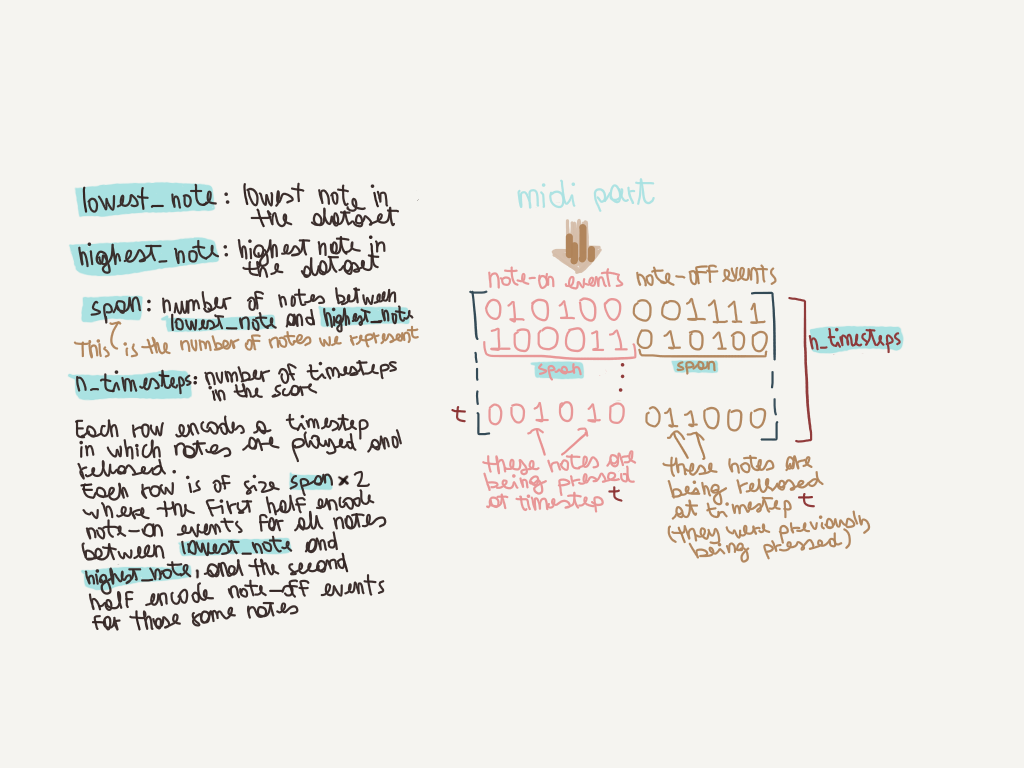 lowest_note : lowest note in
the dataset
highest_note : highest note in
the dataset
span : number of notes between
lowest_note and highest_note
This is the number of notes we represent
n_timesteps : number of timesteps
in the score
Each row encodes a timestep
in which notes are played and
released.
Each row is of size span × 2
where the first half encode
note-on events for all notes
between lowest_note and
highest_note, and the second
half encode note-off events
for those same notes
midi part
note-on events note-off events
0 1 0 1 0 0 0 0 1 1 1 1
1 0 0 0 1 1 0 1 0 1 0 0
n_timesteps
span span
t 0 0 1 0 1 0 0 1 1 0 0 0
these notes are
being pressed
at timestep t
these notes are
being released
at timestep t
(they were previously
being pressed)